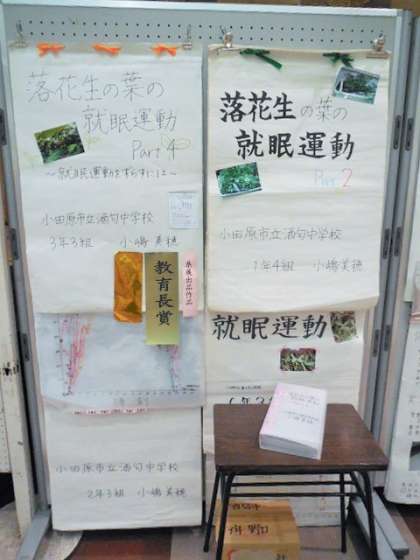 落花生の葉の
就眠運動
Part 4
～就眠運動をずらすには～
小田原市立酒匂中学校
3年3組 小嶋美穂
県展出品作品
教育長賞
小田原市立酒匂中学校
2年3組 小嶋美穂
落花生の葉の
就眠運動
Part 2
小田原市立酒匂中学校
1年4組 小嶋美穂
就眠運動